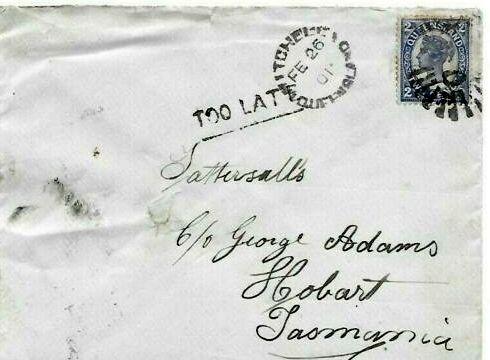 QUEENSLAND
2 2
FE 26
01
QUEENSLAND
TOO LATE
Tattersall's
C/o George Adams
Hobart
Tasmania